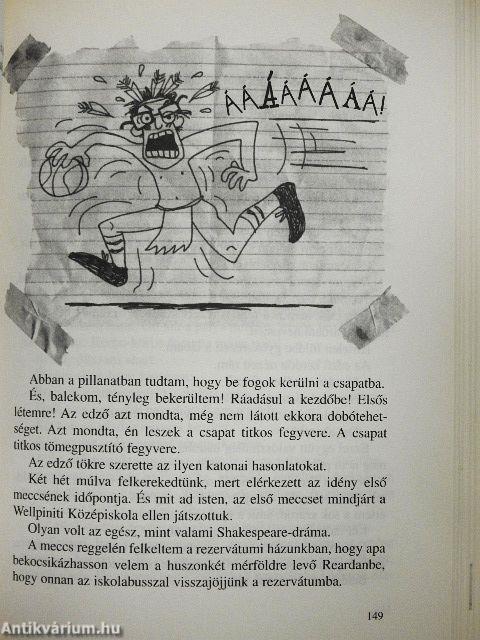 ÁÁÁÁÁÁÁÁ!
Abban a pillanatban tudtam, hogy be fogok kerülni a csapatba.
És, balekom, tényleg bekerültem! Ráadásul a kezdőbe! Elsős
létemre! Az edző azt mondta, még nem látott ekkora dobótehet-
séget. Azt mondta, én leszek a csapat titkos fegyvere. A csapat
titkos tömegpusztító fegyvere.
Az edző tökre szerette az ilyen katonai hasonlatokat.
Két hét múlva felkerekedtünk, mert elérkezett az idény első
meccsének időpontja. És mit ad isten, az első meccset mindjárt a
Wellpiniti Középiskola ellen játszottuk.
Olyan volt az egész, mint valami Shakespeare-dráma.
A meccs reggelén felkeltem a rezervátumi házunkban, hogy apa
bekocsikázhasson velem a huszonkét mérföldre levő Reardanbe,
hogy onnan az iskolabusszal visszajöjjünk a rezervátumba.
149
Antikvárium.hu